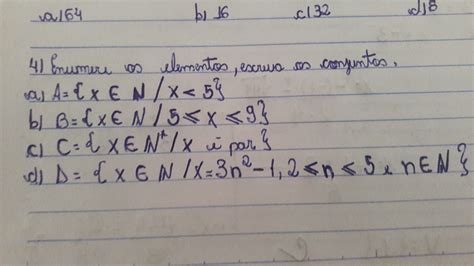 a) 64 b) 16 c) 32 d) 8
4) Enumere os elementos, escreva os conjuntos.
a) A = { x ∈ N / x < 5}
b) B = { x ∈ N / 5 ≤ x ≤ 9}
c) C = { x ∈ N* / x é par}
d) D = { x ∈ N / x = 3n² - 1, 2 ≤ n ≤ 5 e n ∈ N}